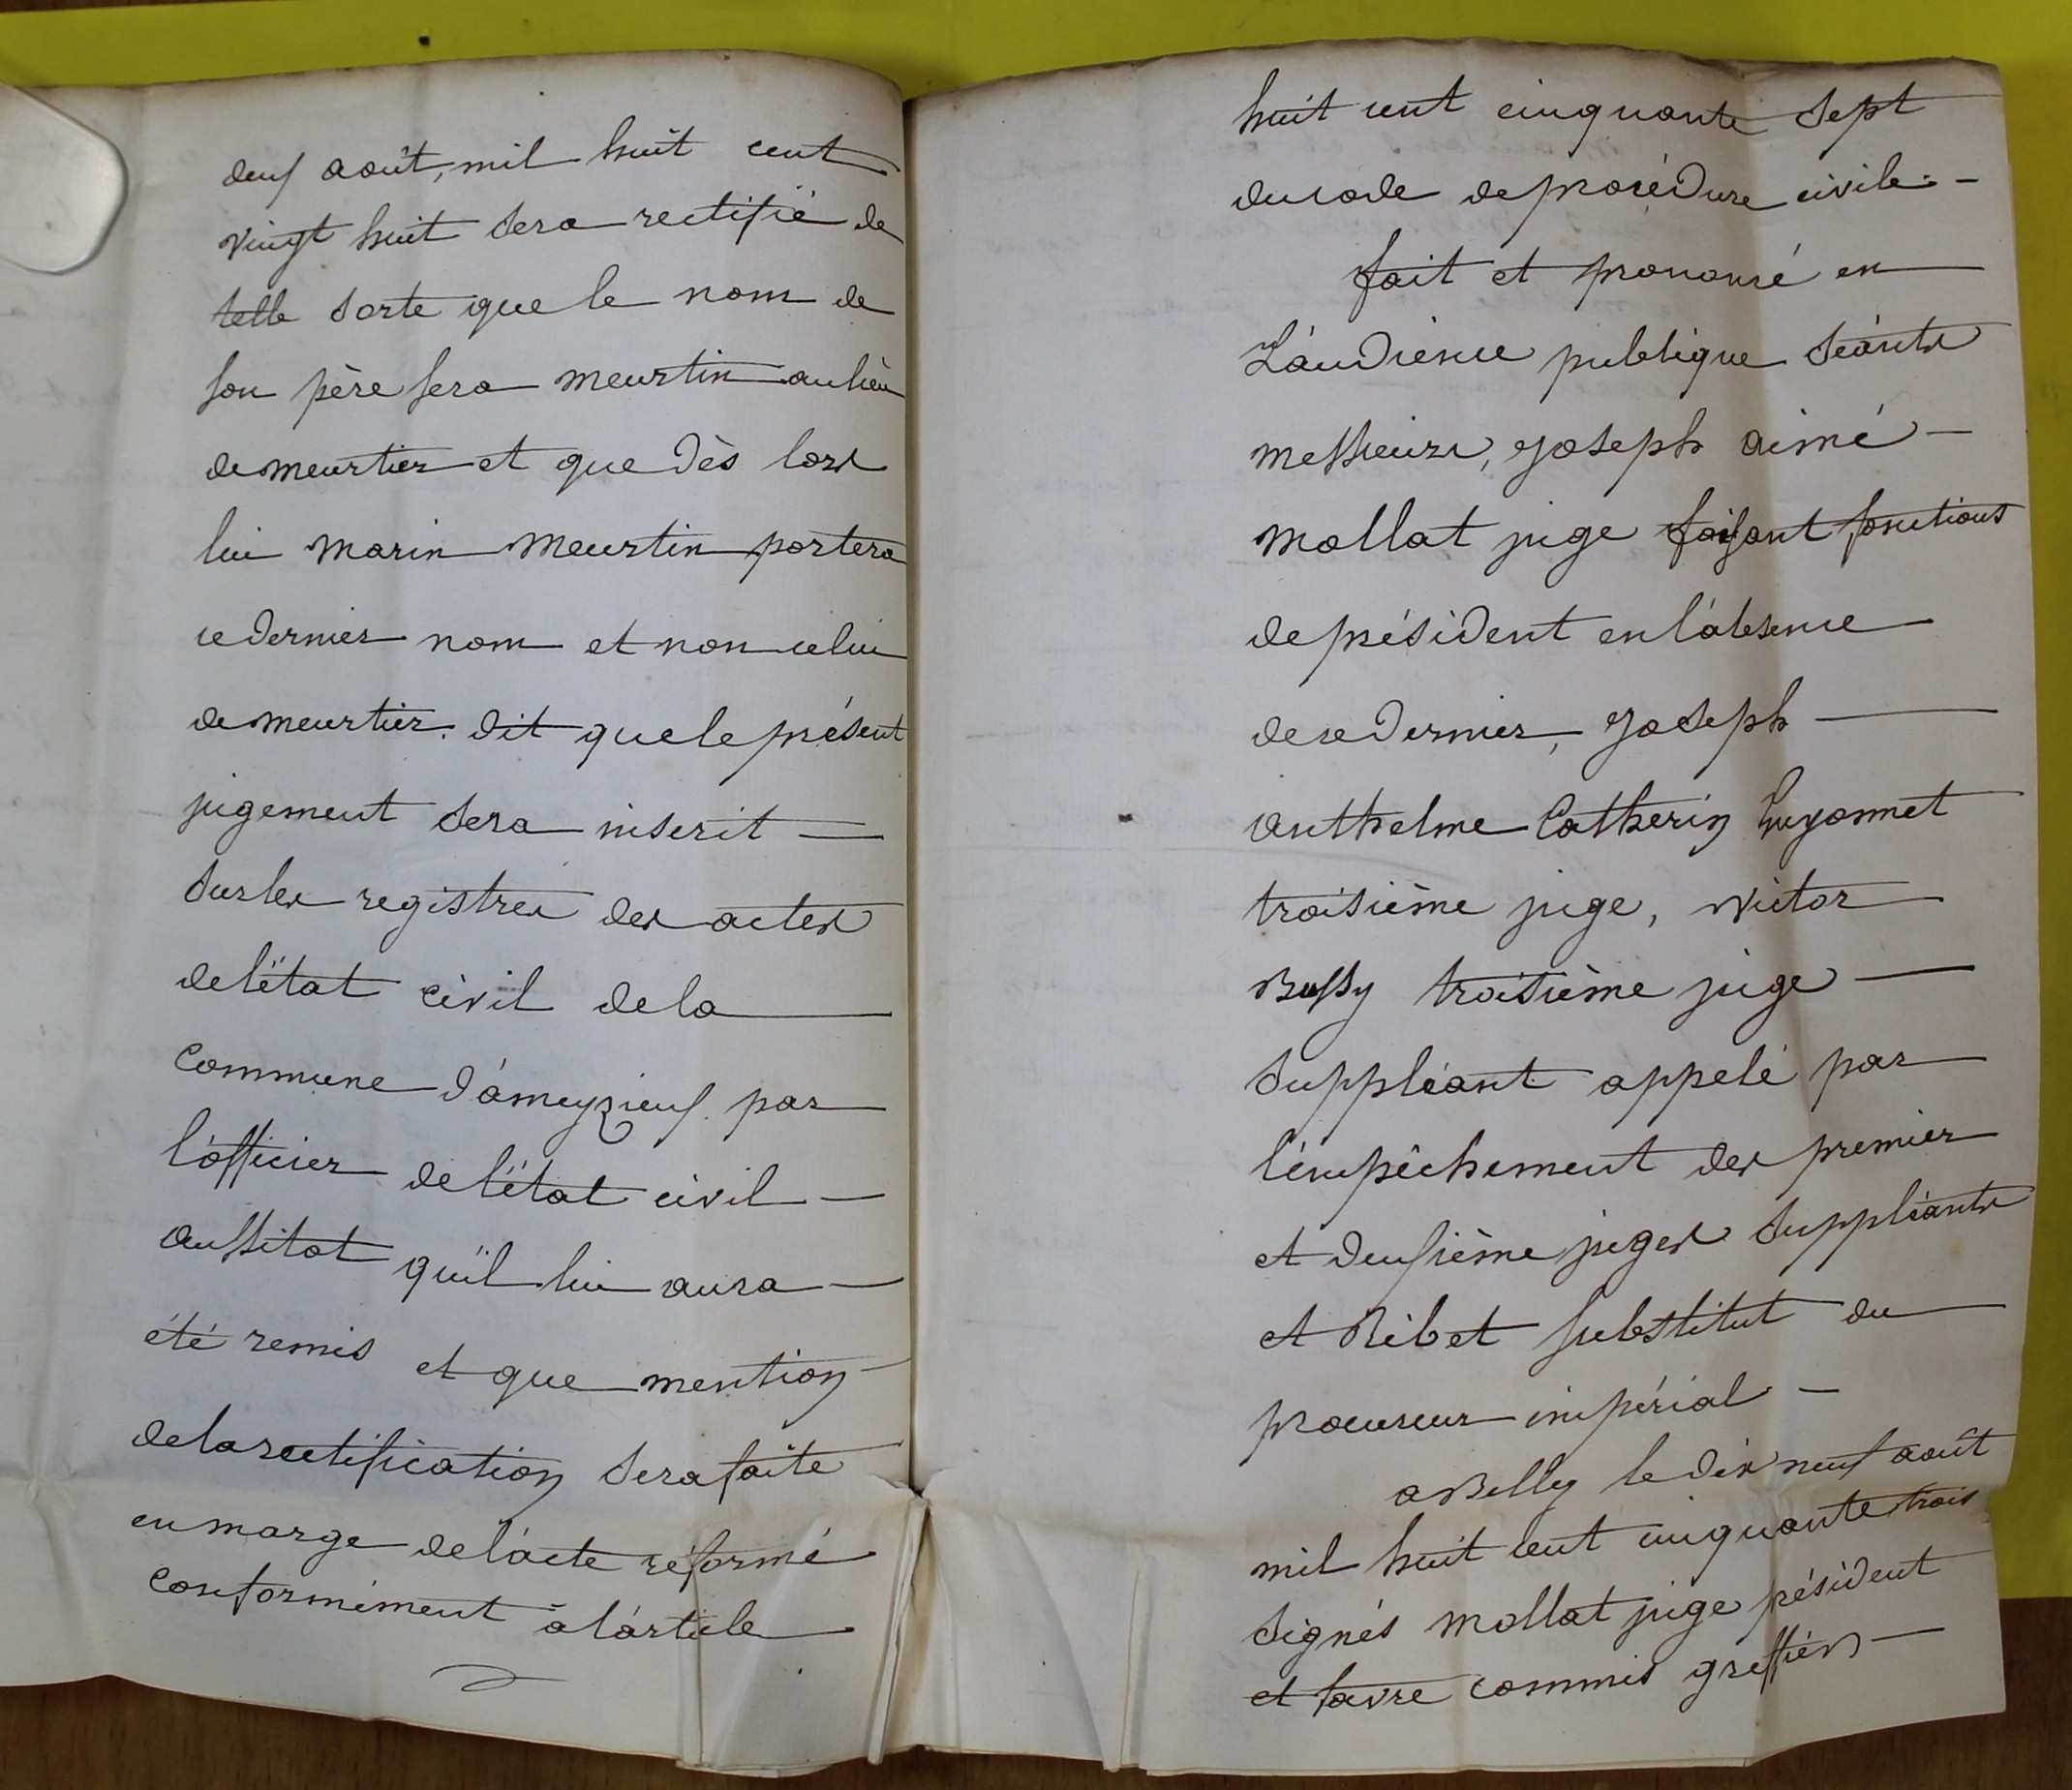 deux août, mil huit cent
vingt huit sera rectifié de
telle sorte que le nom de
son père sera meurtin au lieu
de meurtier et que dès lors
lui marin meurtin portera
ce dernier nom et non celui
de meurtier. dit que le présent
jugement sera inscrit —
sur les registres des actes
de l'état civil de la
Commune d'ameyzieux par
l'officier de l'état civil —
aussitot qu'il lui aura —
été remis et que mention
de la rectification sera faite
en marge de l'acte réformé
conformément à l'article
huit cent cinquante sept
du code de procédure civile. —
fait et prononcé en
L'audience publique séants
messieurs, Joseph aimé —
mollat juge faisant fonctions
de président en l'absence
de ce dernier, Joseph —
anthelme Catherin Guyonnet
troisième juge, victor
Bussy troisième juge —
suppléant appelé par
l'empêchement des premier
et deuxième juges suppléants
et Ribet substitut du
procureur impérial —
a Belley le dix neuf août
mil huit cent cinquante trois
signés mollat juge président
et favre commis greffier —